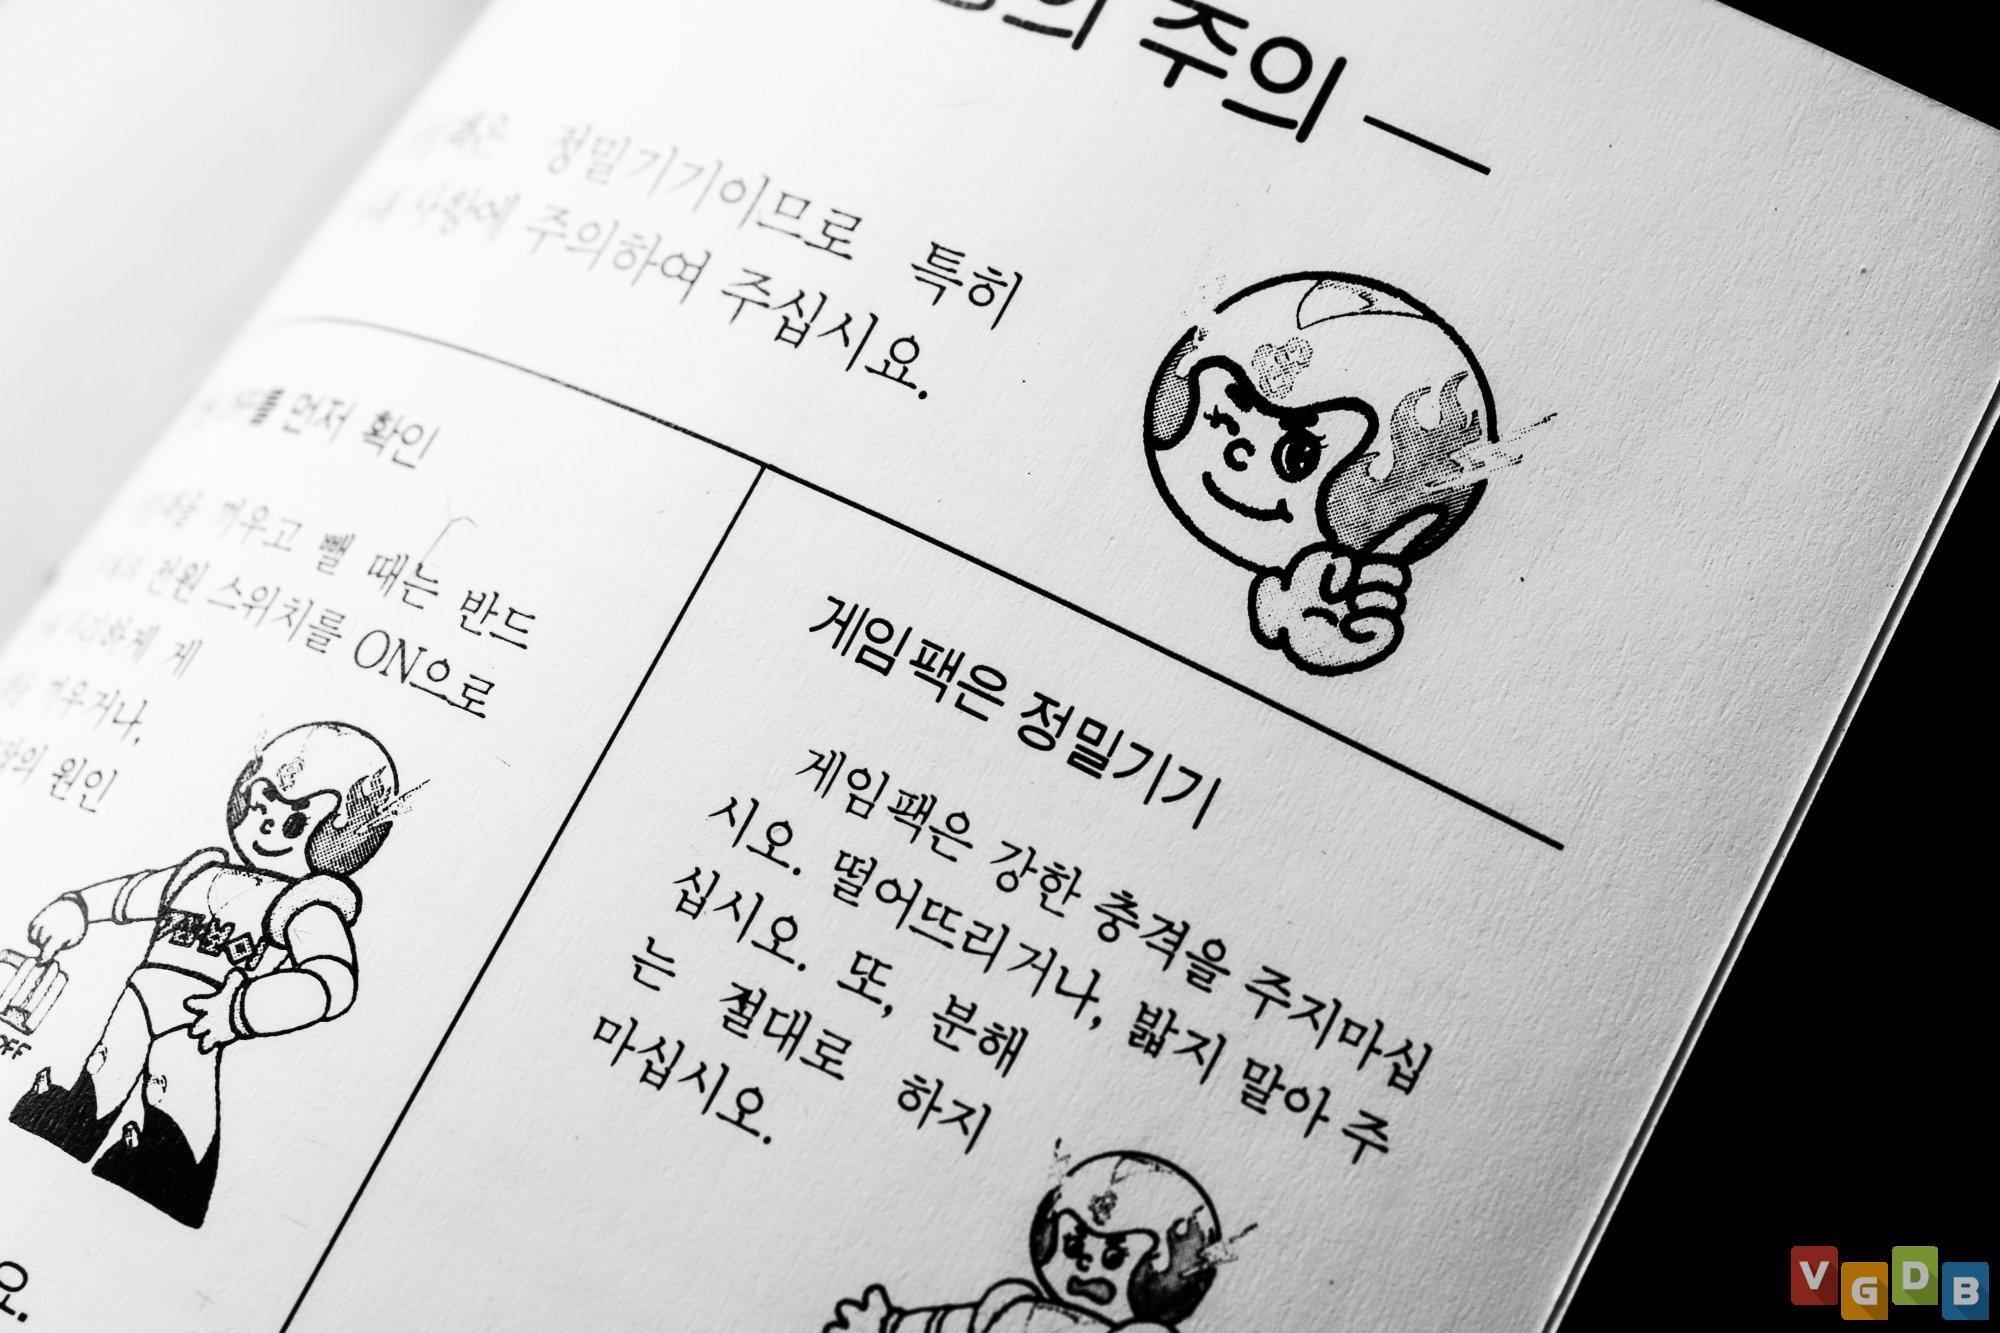 의 주의 —
정밀기기이므로 특히
사항에 주의하여 주십시요.
를 먼저 확인
끼우고 뺄 때는 반드
전원 스위치를 ON으로
무리하게 게
끼우거나,
의 원인
OFF
오.
게임팩은 정밀기기
게임팩은 강한 충격을 주지마십
시오. 떨어뜨리거나, 밟지 말아 주
십시오. 또, 분해
는 절대로 하지
마십시오.
VGDB